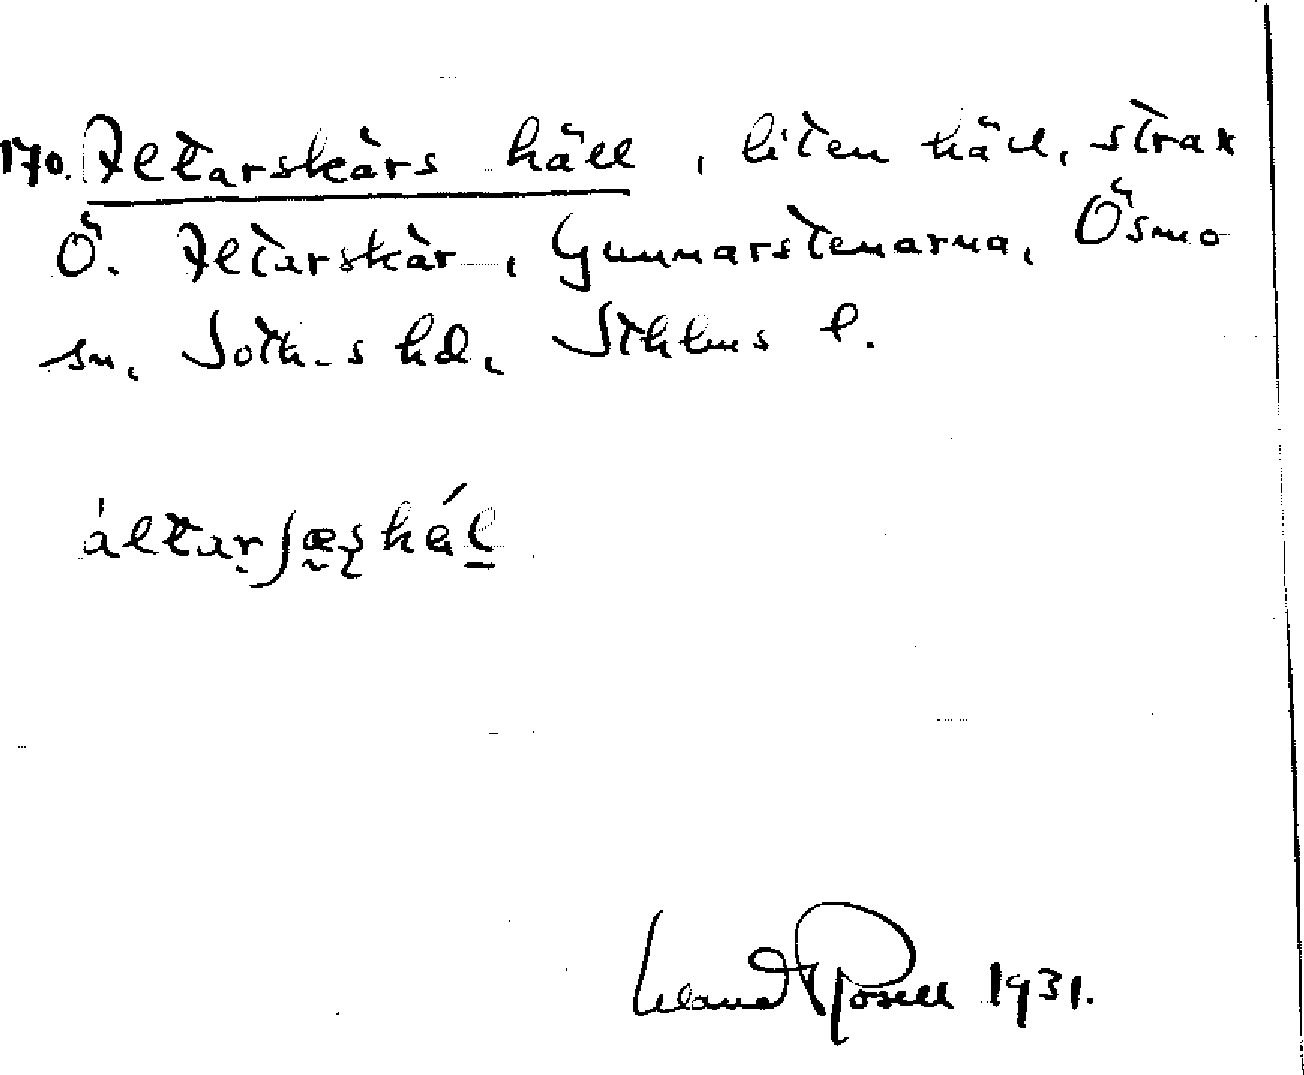 170. Altarskärs häll, liten häll, strax
Ö. Altarskär, Gunnarstenarna, Ösmo
sn, Soth-s hd, Sthlms l.
áltarʃæṣhäl
Rosell 1931.